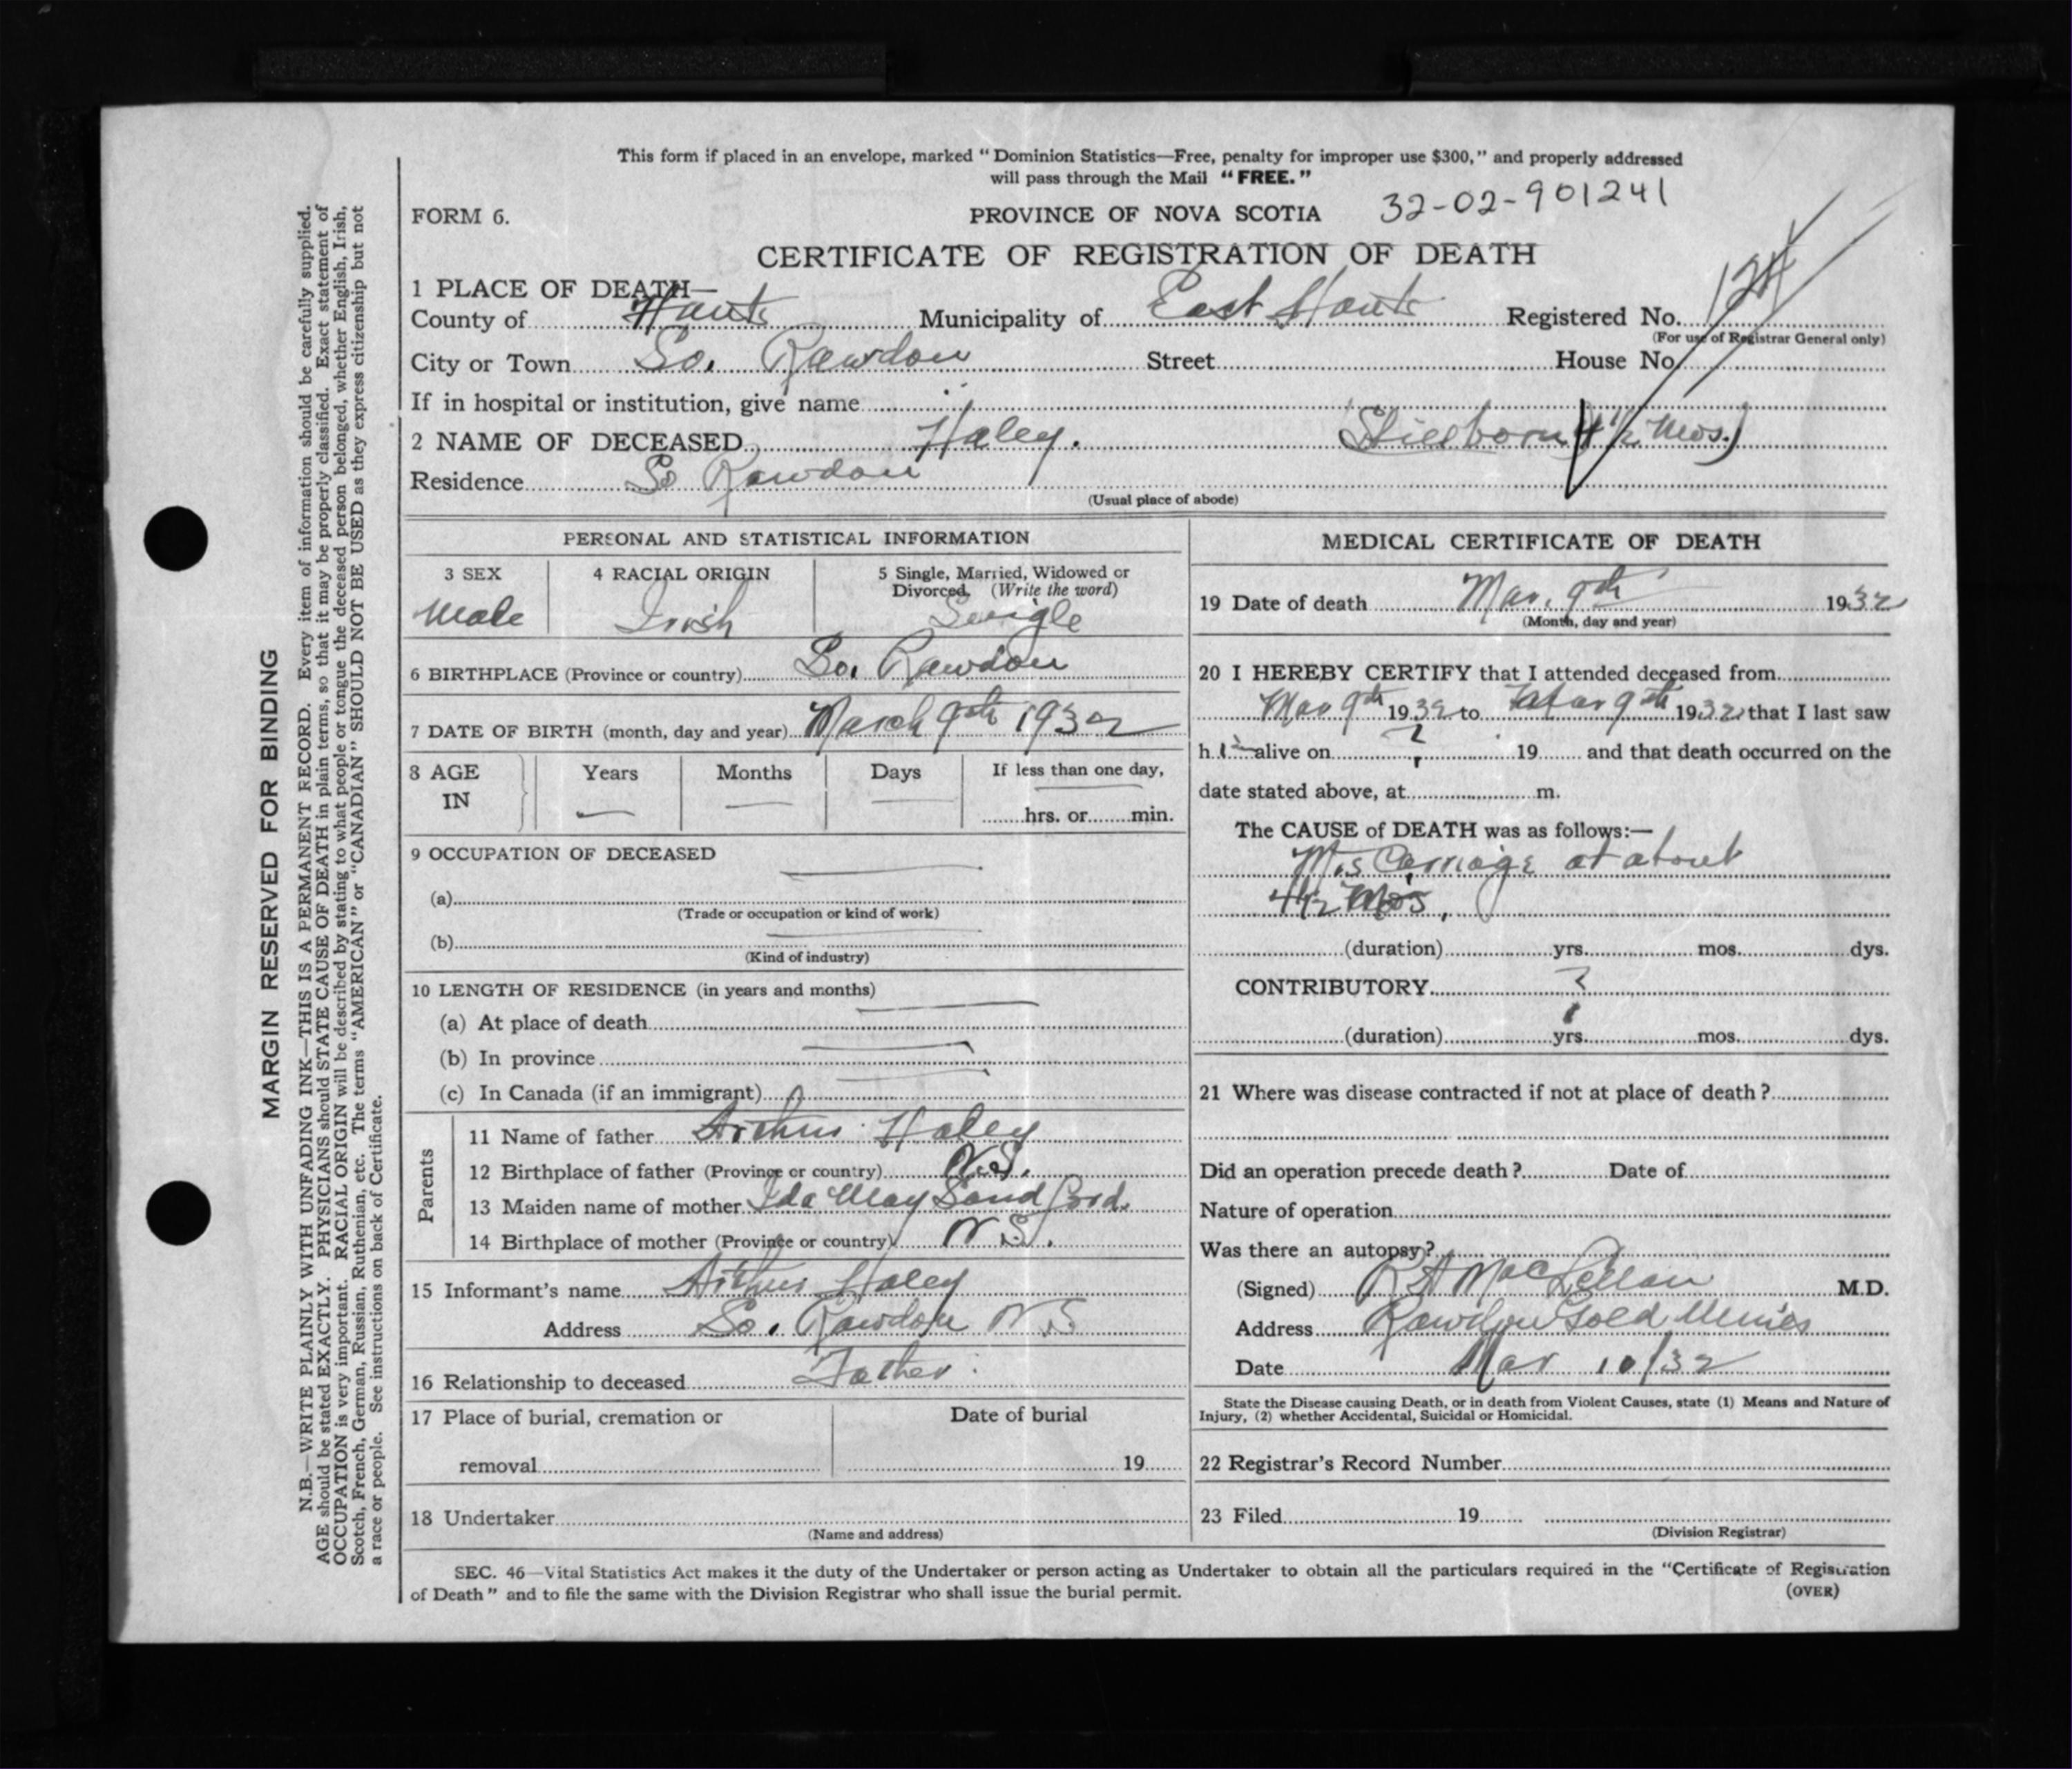 This form if placed in an envelope, marked "Dominion Statistics—Free, penalty for improper use $300," and properly addressed
will pass through the Mail "FREE."
FORM 6.
PROVINCE OF NOVA SCOTIA 32-02-901241
CERTIFICATE OF REGISTRATION OF DEATH
1 PLACE OF DEATH—
County of Hants Municipality of East Hants Registered No. 124
(For use of Registrar General only)
City or Town So. Rawdon Street House No.
If in hospital or institution, give name
2 NAME OF DECEASED Haley. Stillborn (4 1/2 Mos.)
Residence So Rawdon
(Usual place of abode)
PERSONAL AND STATISTICAL INFORMATION
3 SEX 4 RACIAL ORIGIN 5 Single, Married, Widowed or
Divorced. (Write the word)
Male Irish Single
6 BIRTHPLACE (Province or country) So. Rawdon
7 DATE OF BIRTH (month, day and year) March 9th 1932
8 AGE Years Months Days If less than one day,
IN — — — —
hrs. or min.
9 OCCUPATION OF DECEASED
(a)
(Trade or occupation or kind of work)
(b)
(Kind of industry)
10 LENGTH OF RESIDENCE (in years and months)
(a) At place of death
(b) In province
(c) In Canada (if an immigrant)
Parents
11 Name of father Arthur Haley
12 Birthplace of father (Province or country) N.S.
13 Maiden name of mother Ida May Sandford.
14 Birthplace of mother (Province or country) N.S.
15 Informant's name Arthur Haley
Address So. Rawdon N.S
16 Relationship to deceased Father
17 Place of burial, cremation or Date of burial
removal 19
18 Undertaker
(Name and address)
MEDICAL CERTIFICATE OF DEATH
19 Date of death Mar. 9th 1932
(Month, day and year)
20 I HEREBY CERTIFY that I attended deceased from
Mar 9th 1932 to Mar 9th 1932 that I last saw
h alive on ? 19 and that death occurred on the
date stated above, at m.
The CAUSE of DEATH was as follows:—
Mis Carriage at about
4 1/2 Mos.
(duration) yrs. mos. dys.
CONTRIBUTORY ?
(duration) yrs. mos. dys.
21 Where was disease contracted if not at place of death?
Did an operation precede death? Date of
Nature of operation
Was there an autopsy?
(Signed) R A MacLellan M.D.
Address Rawdon Gold Mines
Date Mar 10/32
State the Disease causing Death, or in death from Violent Causes, state (1) Means and Nature of
Injury, (2) whether Accidental, Suicidal or Homicidal.
22 Registrar's Record Number
23 Filed 19
(Division Registrar)
SEC. 46—Vital Statistics Act makes it the duty of the Undertaker or person acting as Undertaker to obtain all the particulars required in the "Certificate of Registration
of Death" and to file the same with the Division Registrar who shall issue the burial permit.
(OVER)
MARGIN RESERVED FOR BINDING
N.B.—WRITE PLAINLY WITH UNFADING INK—THIS IS A PERMANENT RECORD. Every item of information should be carefully supplied.
AGE should be stated EXACTLY. PHYSICIANS should STATE CAUSE OF DEATH in plain terms, so that it may be properly classified. Exact statement of
OCCUPATION is very important. RACIAL ORIGIN will be described by stating to what people or tongue the deceased person belonged, whether English, Irish,
Scotch, French, German, Russian, Ruthenian, etc. The terms "AMERICAN" or "CANADIAN" SHOULD NOT BE USED as they express citizenship but not
a race or people. See instructions on back of Certificate.